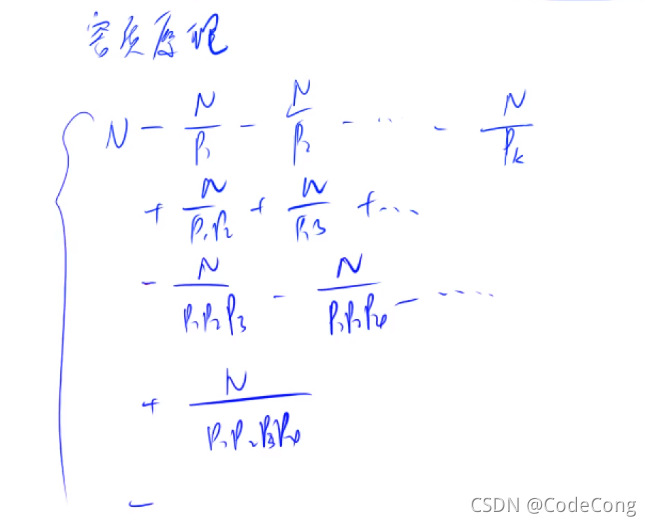 容斥原理
N - N/P₁ - N/P₂ - ... - N/Pₖ
+ N/P₁P₂ + N/P₁P₃ + ...
- N/P₁P₂P₃ - N/P₁P₂P₄ - ....
+ N/P₁P₂P₃P₄
-
CSDN @CodeCong